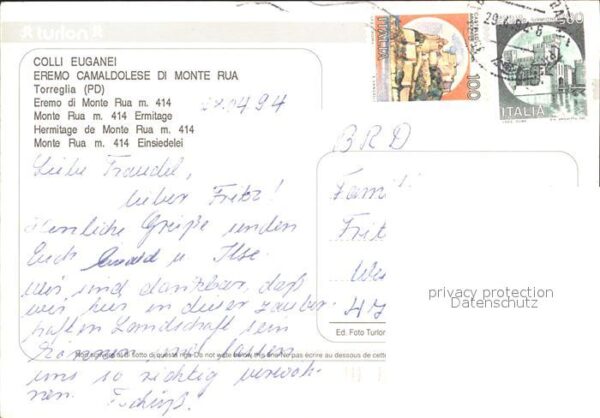 turlon
COLLI EUGANEI
EREMO CAMALDOLESE DI MONTE RUA
Torreglia (PD)
Eremo di Monte Rua m. 414
Monte Rua m. 414 Ermitage
Hermitage de Monte Rua m. 414
Monte Rua m. 414 Einsiedelei
0494
ITALIA
100
500
ITALIA
BRD
Liebe Traudel,
lieber Fritz!
Herzliche Grüße senden
Euch u Ilse.
Wir sind dankbar, daß
wir hier in dieser zauber
haften Landschaft sein
können und lassen
uns so richtig verwöh-
nen.
Famili
Frit
We
47
privacy protection
Datenschutz
Ed. Foto Turlon
di sotto di questa riga Do not write below this line Ne pas écrire au dessous de cette